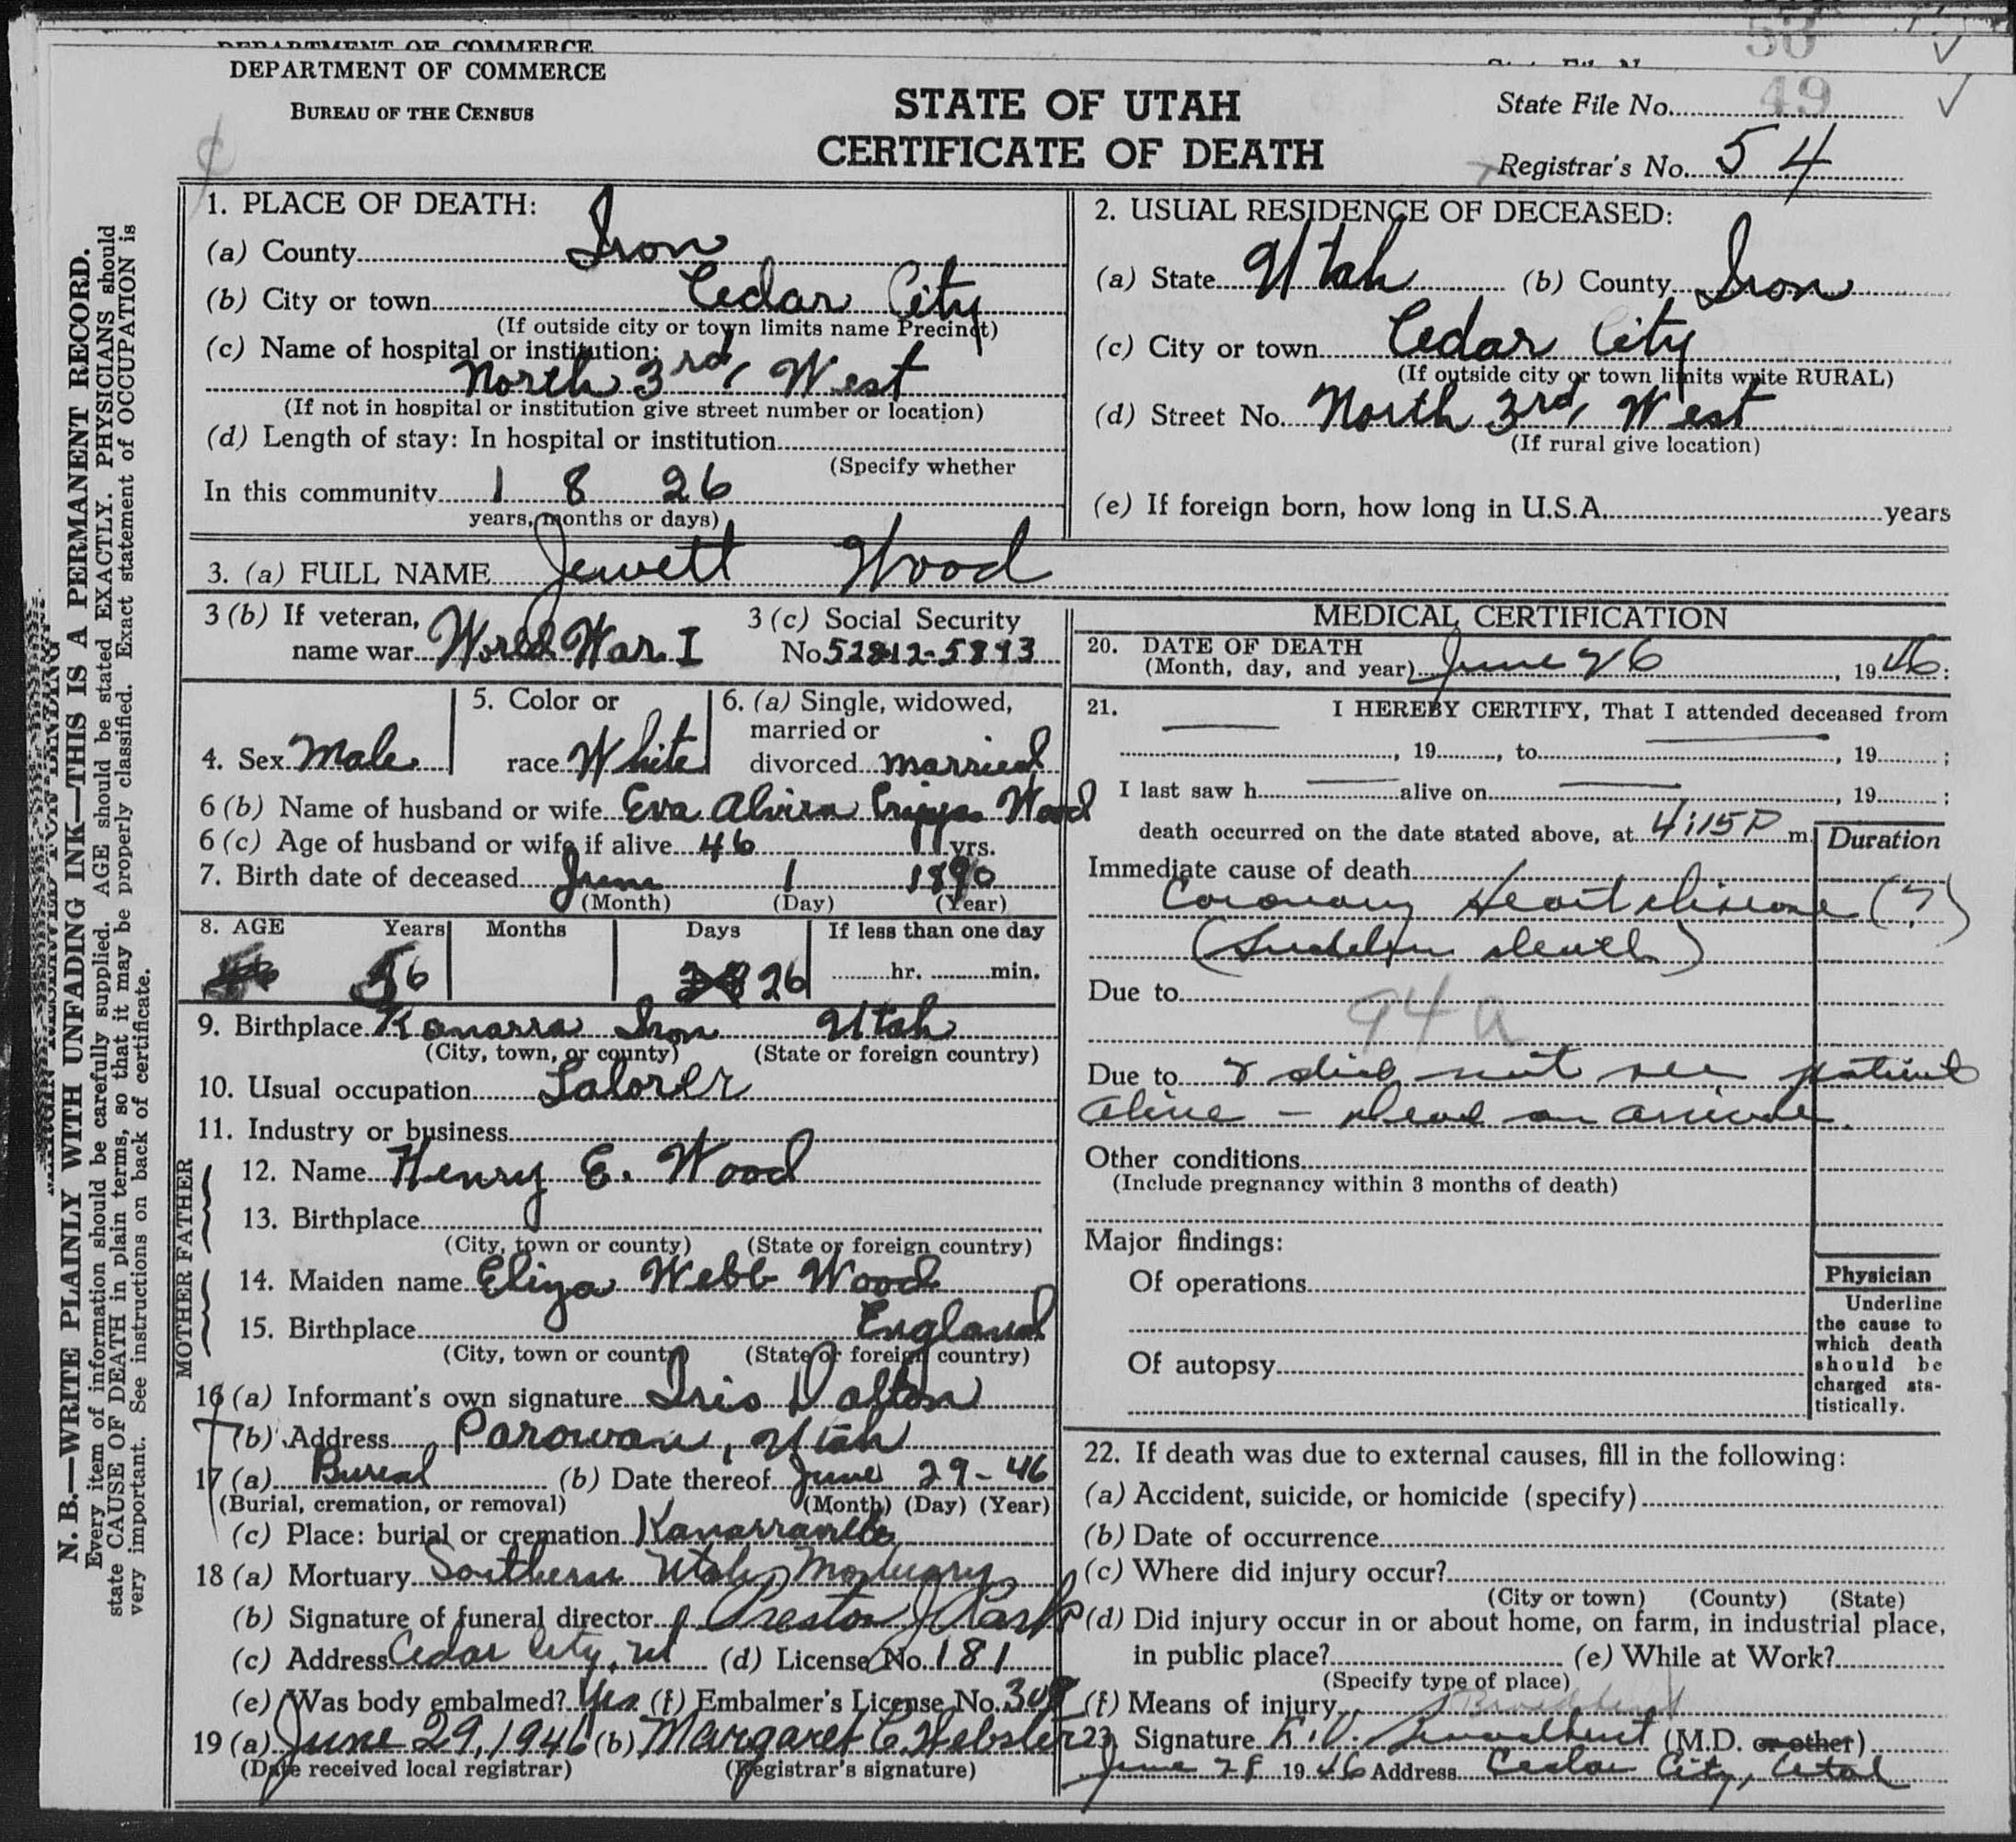 DEPARTMENT OF COMMERCE
DEPARTMENT OF COMMERCE
BUREAU OF THE CENSUS
STATE OF UTAH
CERTIFICATE OF DEATH
53
State File No. 49
Registrar's No. 54
N. B.—WRITE PLAINLY WITH UNFADING INK—THIS IS A PERMANENT RECORD.
Every item of information should be carefully supplied. AGE should be stated EXACTLY. PHYSICIANS should
state CAUSE OF DEATH in plain terms, so that it may be properly classified. Exact statement of OCCUPATION is
very important. See instructions on back of certificate.
1. PLACE OF DEATH:
(a) County Iron
(b) City or town Cedar City
(If outside city or town limits name Precinct)
(c) Name of hospital or institution:
North 3rd, West
(If not in hospital or institution give street number or location)
(d) Length of stay: In hospital or institution
(Specify whether
In this community 1 8 26
years, months or days)
2. USUAL RESIDENCE OF DECEASED:
(a) State Utah (b) County Iron
(c) City or town Cedar City
(If outside city or town limits write RURAL)
(d) Street No. North 3rd, West
(If rural give location)
(e) If foreign born, how long in U.S.A. years
3. (a) FULL NAME Jewett Wood
3 (b) If veteran,
name war World War I
3 (c) Social Security
No.
4. Sex Male
5. Color or
race White
6. (a) Single, widowed,
married or
divorced married
6 (b) Name of husband or wife Eva Alvira Wood
6 (c) Age of husband or wife if alive 46 yrs.
7. Birth date of deceased June 1 1890
(Month) (Day) (Year)
8. AGE Years Months Days If less than one day
56 26 hr. min.
9. Birthplace Kanarra Iron Utah
(City, town, or county) (State or foreign country)
10. Usual occupation Laborer
11. Industry or business
FATHER
12. Name Henry E. Wood
13. Birthplace
(City, town or county) (State or foreign country)
MOTHER
14. Maiden name Eliza Webb Wood
15. Birthplace England
(City, town or county) (State or foreign country)
16 (a) Informant's own signature Iris Dalton
(b) Address Parowan, Utah
17 (a) Burial (b) Date thereof June 29-46
(Burial, cremation, or removal) (Month) (Day) (Year)
(c) Place: burial or cremation Kanarraville
18 (a) Mortuary Southern Utah Mortuary
(b) Signature of funeral director Preston J
(c) Address Cedar City, Ut (d) License No. 181
(e) Was body embalmed? Yes (f) Embalmer's License No.
19 (a) June 29, 1946 (b) Margaret C Webster
(Date received local registrar) (Registrar's signature)
MEDICAL CERTIFICATION
20. DATE OF DEATH
(Month, day, and year) June 26, 1946:
21. I HEREBY CERTIFY, That I attended deceased from
, 19 , to , 19 ;
I last saw h alive on , 19 ;
death occurred on the date stated above, at 4:15 P m.
Duration
Immediate cause of death
Coronary Heart disease (?)
(Sudden death)
Due to
94a
Due to I did not see patient
alive - dead on arrival.
Other conditions
(Include pregnancy within 3 months of death)
Major findings:
Of operations
Of autopsy
Physician
Underline
the cause to
which death
should be
charged sta-
tistically.
22. If death was due to external causes, fill in the following:
(a) Accident, suicide, or homicide (specify)
(b) Date of occurrence
(c) Where did injury occur?
(City or town) (County) (State)
(d) Did injury occur in or about home, on farm, in industrial place,
in public place? (e) While at Work?
(Specify type of place)
(f) Means of injury Broadbent
23. Signature Broadbent (M.D. or other)
June 28 1946 Address Cedar City, Utah